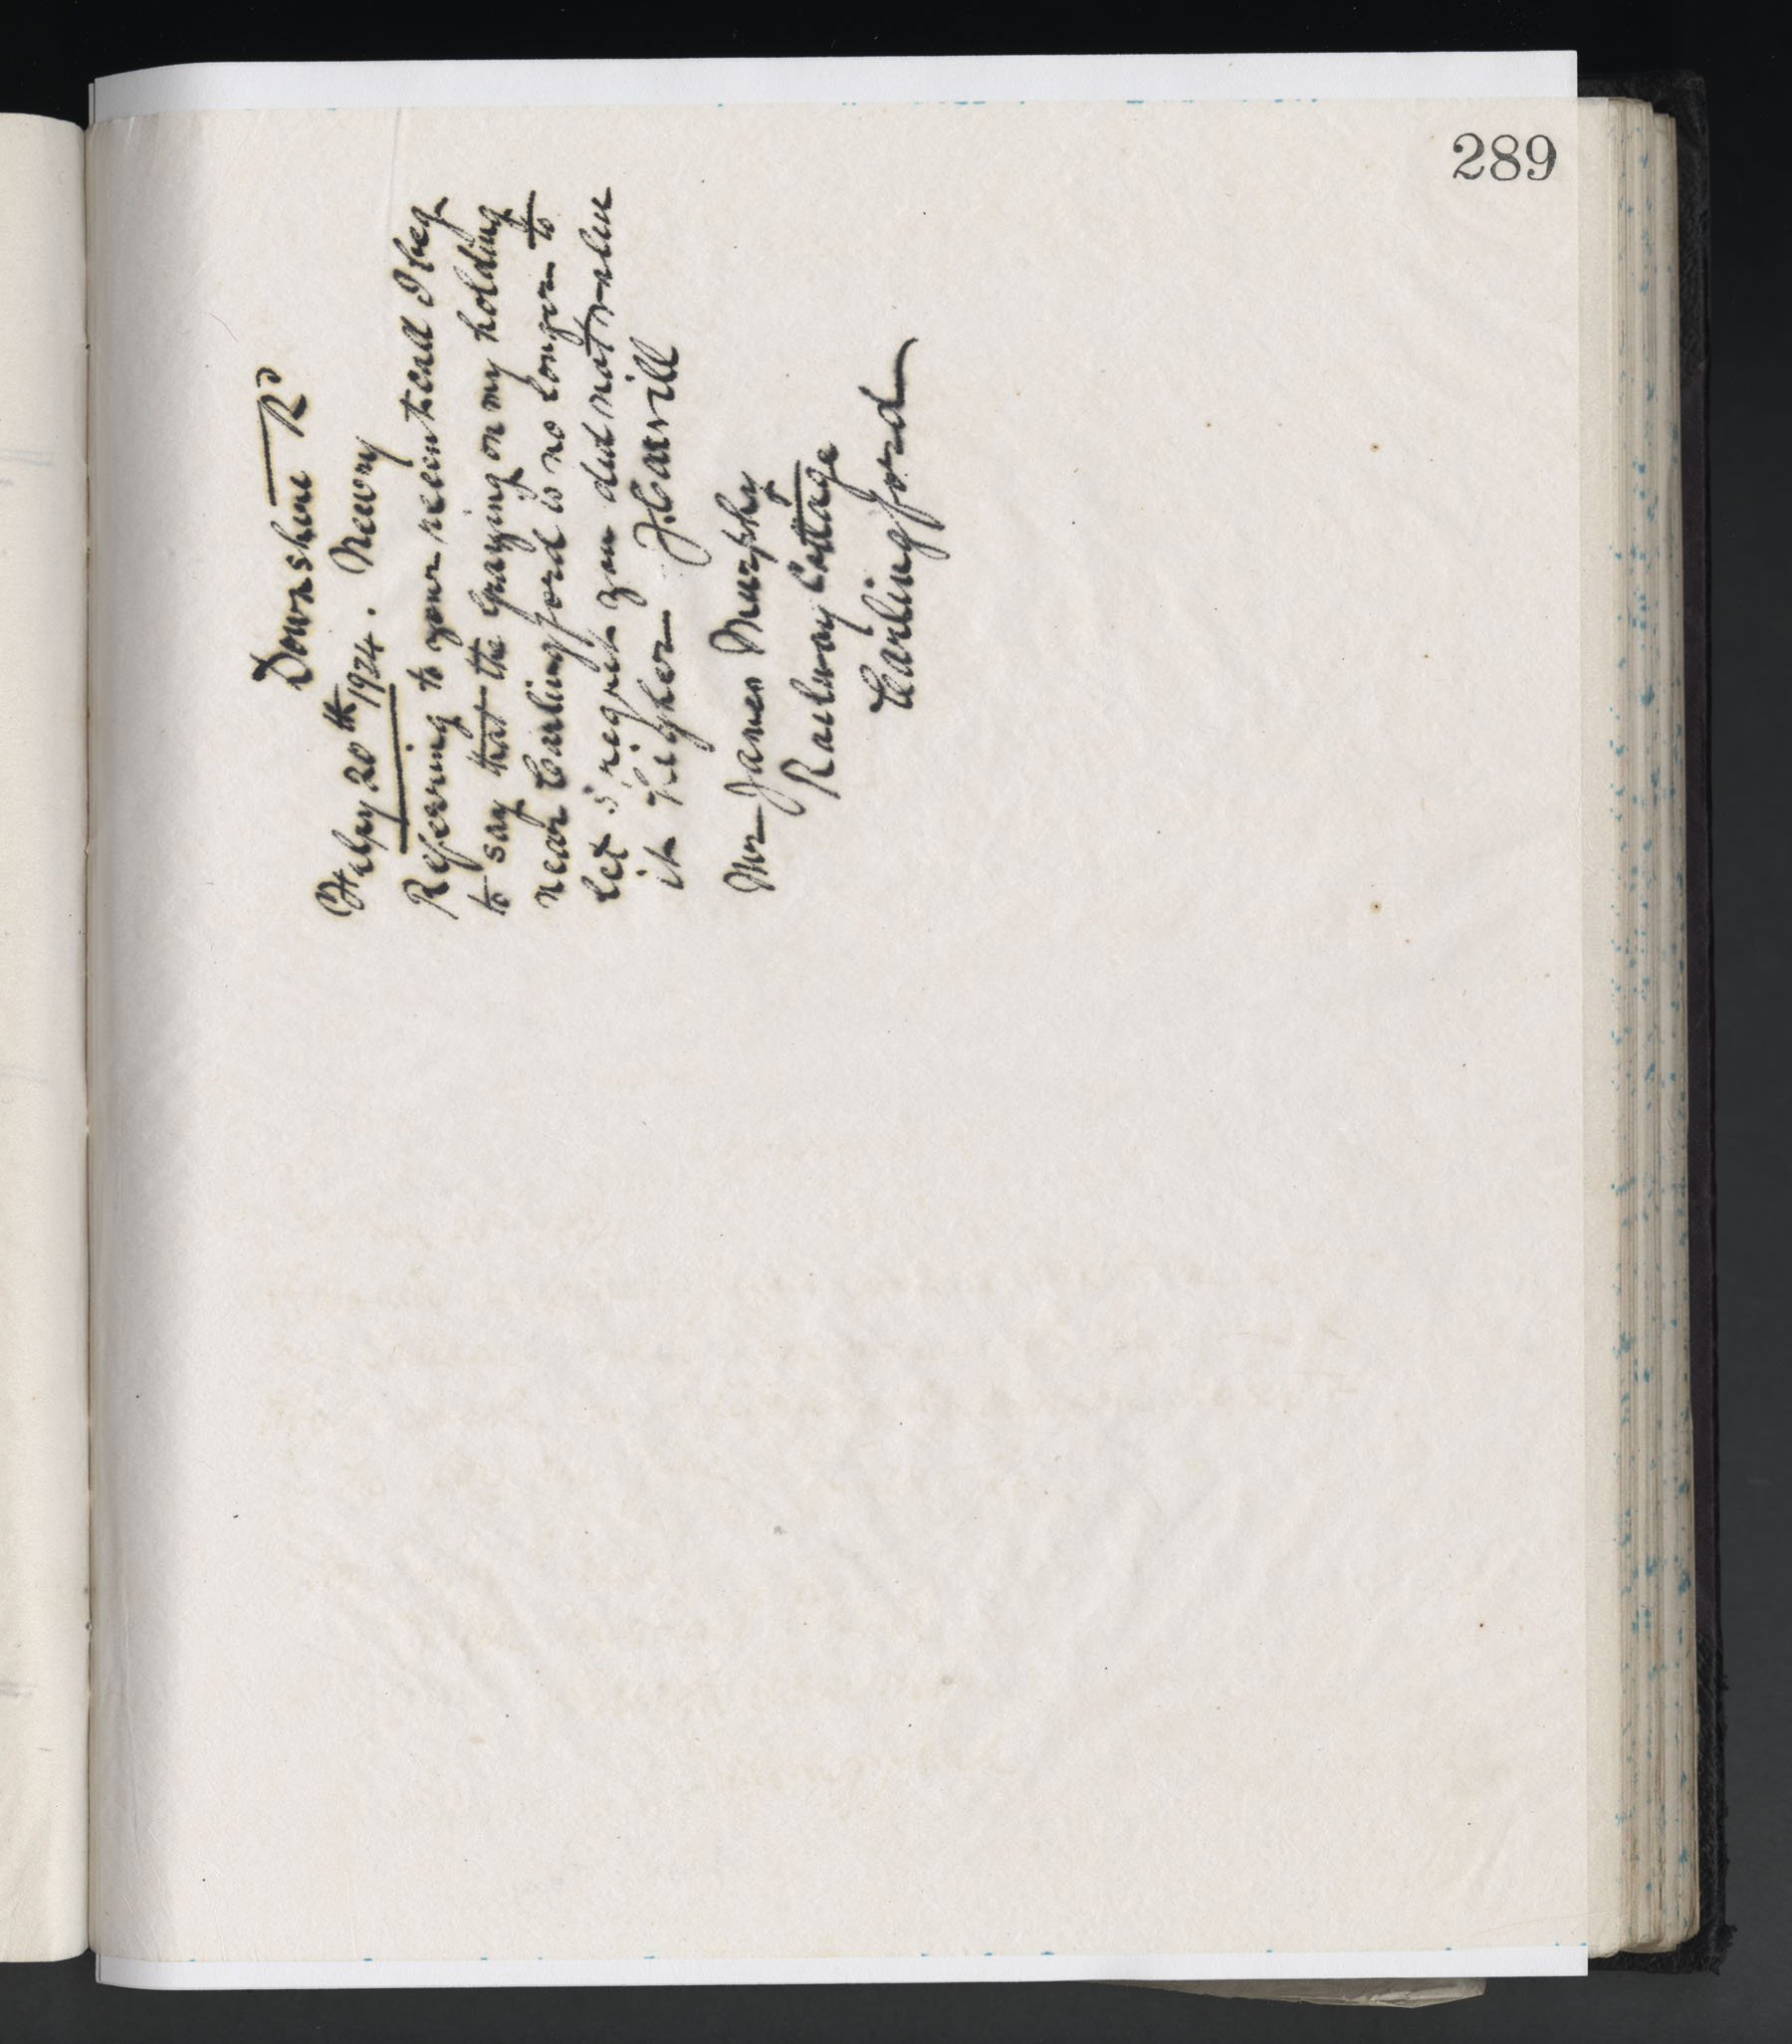 289
Downshire Rd
20th 1924. Newry
Referring to your recent call I beg
to say that the grazing on my holding
near Carlingford is no longer to
let & regret you did not value
it higher J. Carvill
Mr James Murphy
Railway Cottage
Carlingford